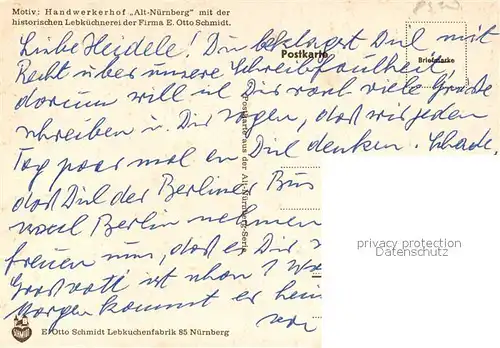 Motiv: Handwerkerhof „Alt-Nürnberg" mit der
historischen Lebküchnerei der Firma E. Otto Schmidt.
Postkarte
Briefmarke
Liebe Heidele! Du beklagst Dich mit
Recht über unsere Schreibfaulheit,
darum will ich Dir recht viele Grüße
schreiben u. Dir sagen, daß wir jeden
Tag paar mal an Dich denken. Schade,
daß Dich der Berliner Bus
nach Berlin nehmen
freuen uns, daß es Dir
Großvati ist schon
Morgen kommt er heim
von
Postkarte aus der Alt-Nürnberg-Serie
privacy protection
Datenschutz
SCHMIDT
E. Otto Schmidt Lebkuchenfabrik 85 Nürnberg